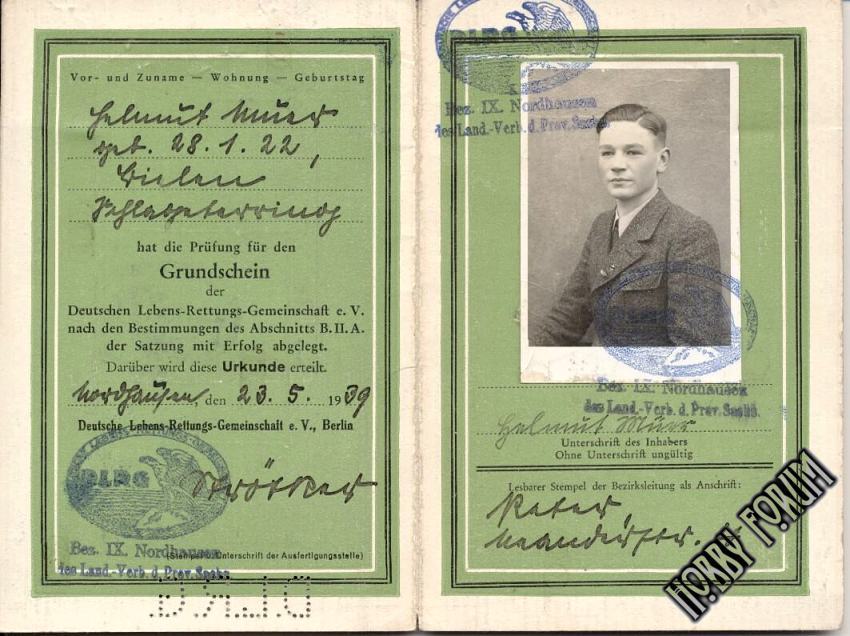 Vor- und Zuname — Wohnung — Geburtstag
Helmut Müer
geb. 28.1.22,
Bielen
Schlageterring
hat die Prüfung für den
Grundschein
der
Deutschen Lebens-Rettungs-Gemeinschaft e. V.
nach den Bestimmungen des Abschnitts B.II.A.
der Satzung mit Erfolg abgelegt.
Darüber wird diese Urkunde erteilt.
Nordhausen, den 23.5. 1939
Deutsche Lebens-Rettungs-Gemeinschaft e. V., Berlin
DLRG
Bez. IX. Nordhausen
des Land.-Verb. d. Prov. Sachs.
(Stempel u. Unterschrift der Ausfertigungsstelle)
D.L.R.G.
DLRG
Bez. IX. Nordhausen
des Land.-Verb. d. Prov. Sachs.
Bez. IX. Nordhausen
des Land.-Verb. d. Prov. Sachs.
Helmut Müer
Unterschrift des Inhabers
Ohne Unterschrift ungültig
Lesbarer Stempel der Bezirksleitung als Anschrift:
HOBBY FORUM